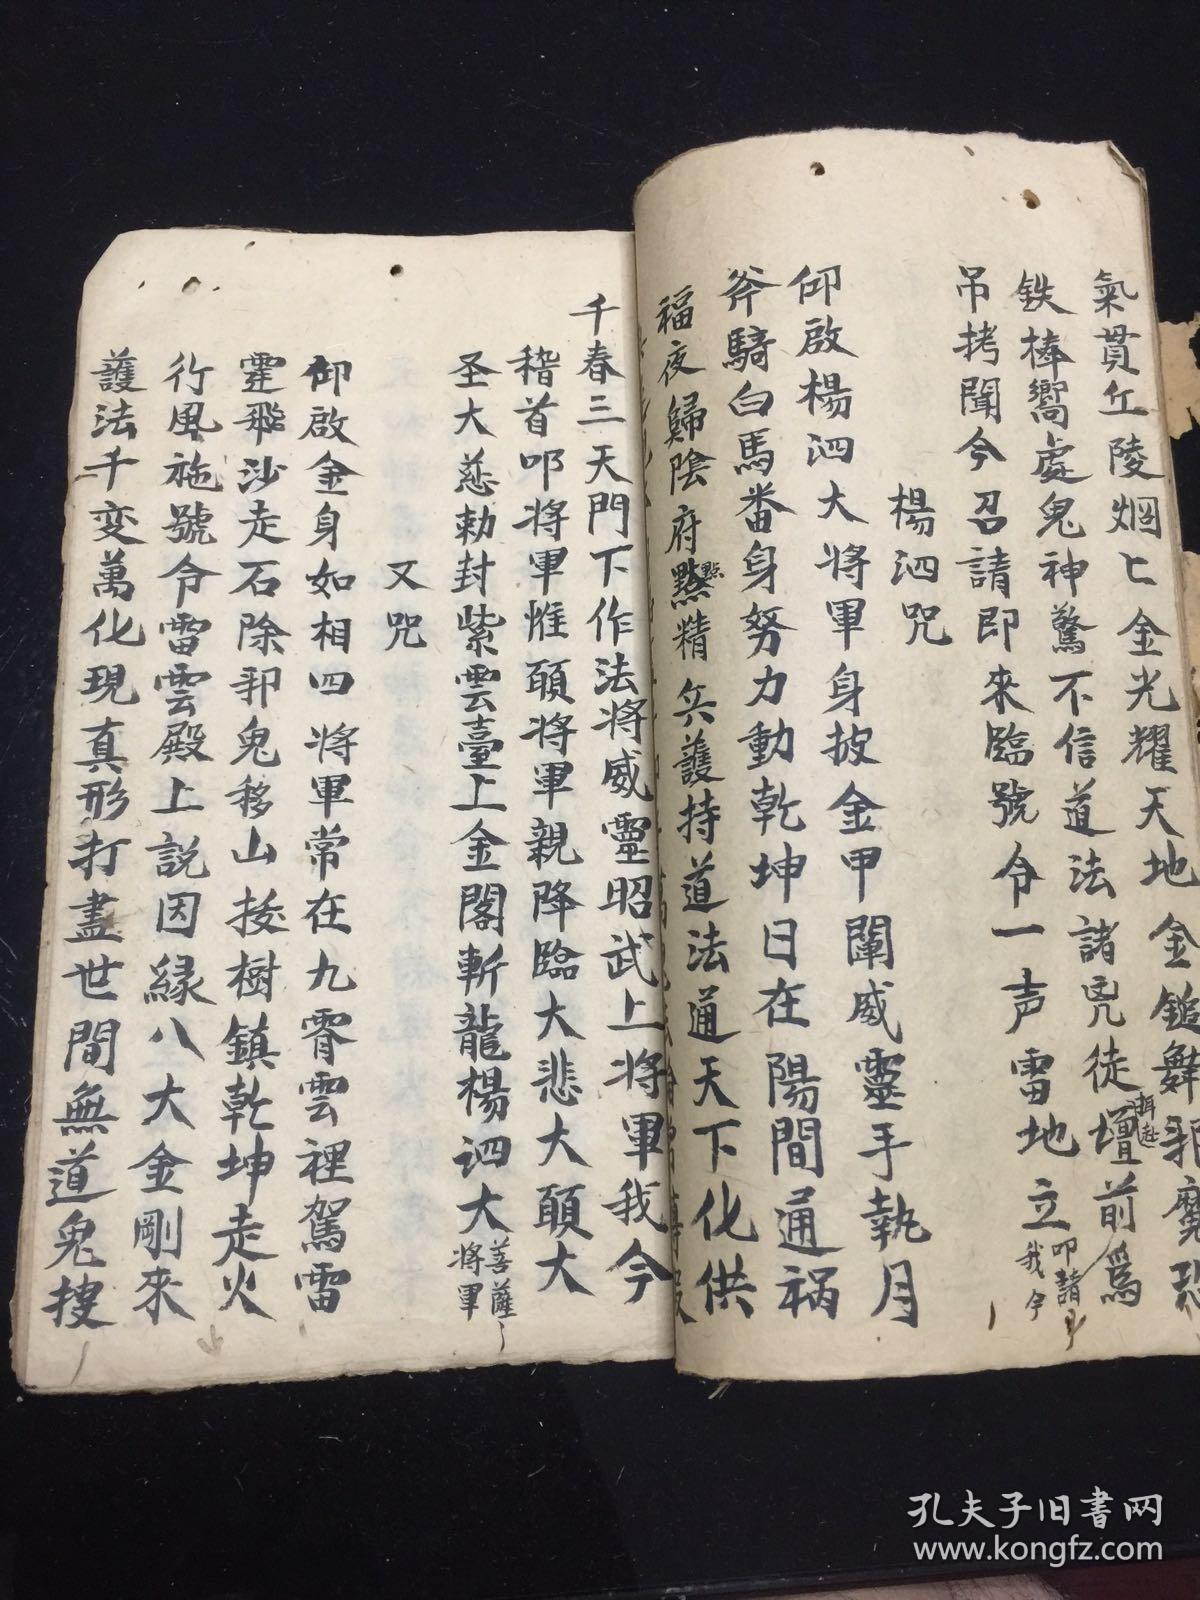 氣貫丘陵烟匕金光耀天地金鎚舞邪魔恐
鉄棒嚮處鬼神驚不信道法諸兇徒壇前爲
吊拷聞今召請即來臨號令一声雷地立
叩請
我今
楊泗咒
仰啟楊泗大將軍身披金甲闡威靈手執月
斧騎白馬番身努力動乾坤日在陽間通祸
福夜歸隂府點精兵護持道法通天下化供
點
千春三天門下作法將威靈昭武上將軍我今
稽首叩將軍惟頋將軍親降臨大悲大頋大
圣大慈勅封紫雲臺上金閣斬龍楊泗大
菩薩
將軍
又咒
仰啟金身如相四將軍常在九霄雲裡駕雷
霆飛沙走石除邪鬼移山拔樹鎮乾坤走火
行風施號令雷雲殿上説因緣八大金剛來
護法千变萬化現真形打盡世間無道鬼捜
孔夫子旧書网
www.kongfz.com